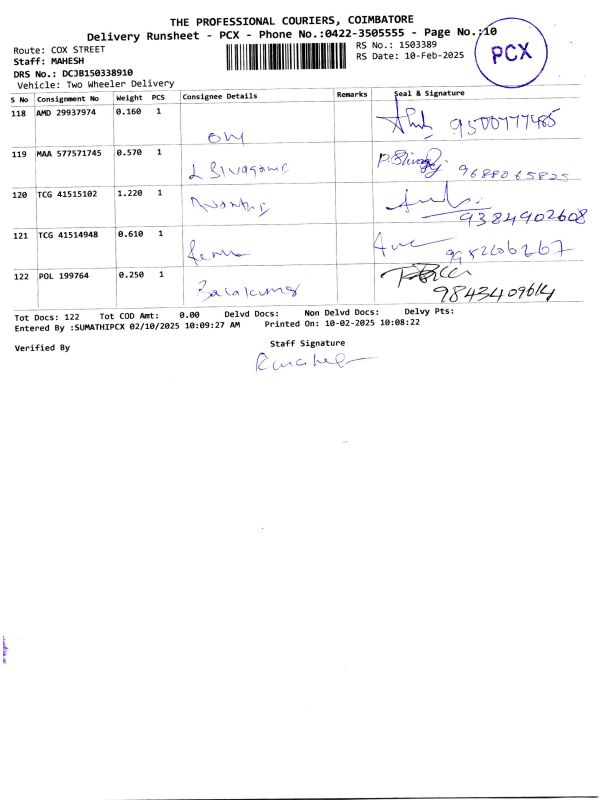 THE PROFESSIONAL COURIERS, COIMBATORE
Delivery Runsheet - PCX - Phone No.:0422-3505555 - Page No.:10
PCX
Route: COX STREET
RS No.: 1503389
Staff: MAHESH
RS Date: 10-Feb-2025
DRS No.: DCJB150338910
Vehicle: Two Wheeler Delivery
S No Consignment No Weight PCS Consignee Details Remarks Seal & Signature
118 AMD 29937974 0.160 1 9500777485
119 MAA 577571745 0.570 1 9688065825
120 TCG 41515102 1.220 1 9384902608
121 TCG 41514948 0.610 1
122 POL 199764 0.250 1 9843409614
Tot Docs: 122 Tot COD Amt: 0.00 Delvd Docs: Non Delvd Docs: Delvy Pts:
Entered By :SUMATHIPCX 02/10/2025 10:09:27 AM Printed On: 10-02-2025 10:08:22
Verified By Staff Signature